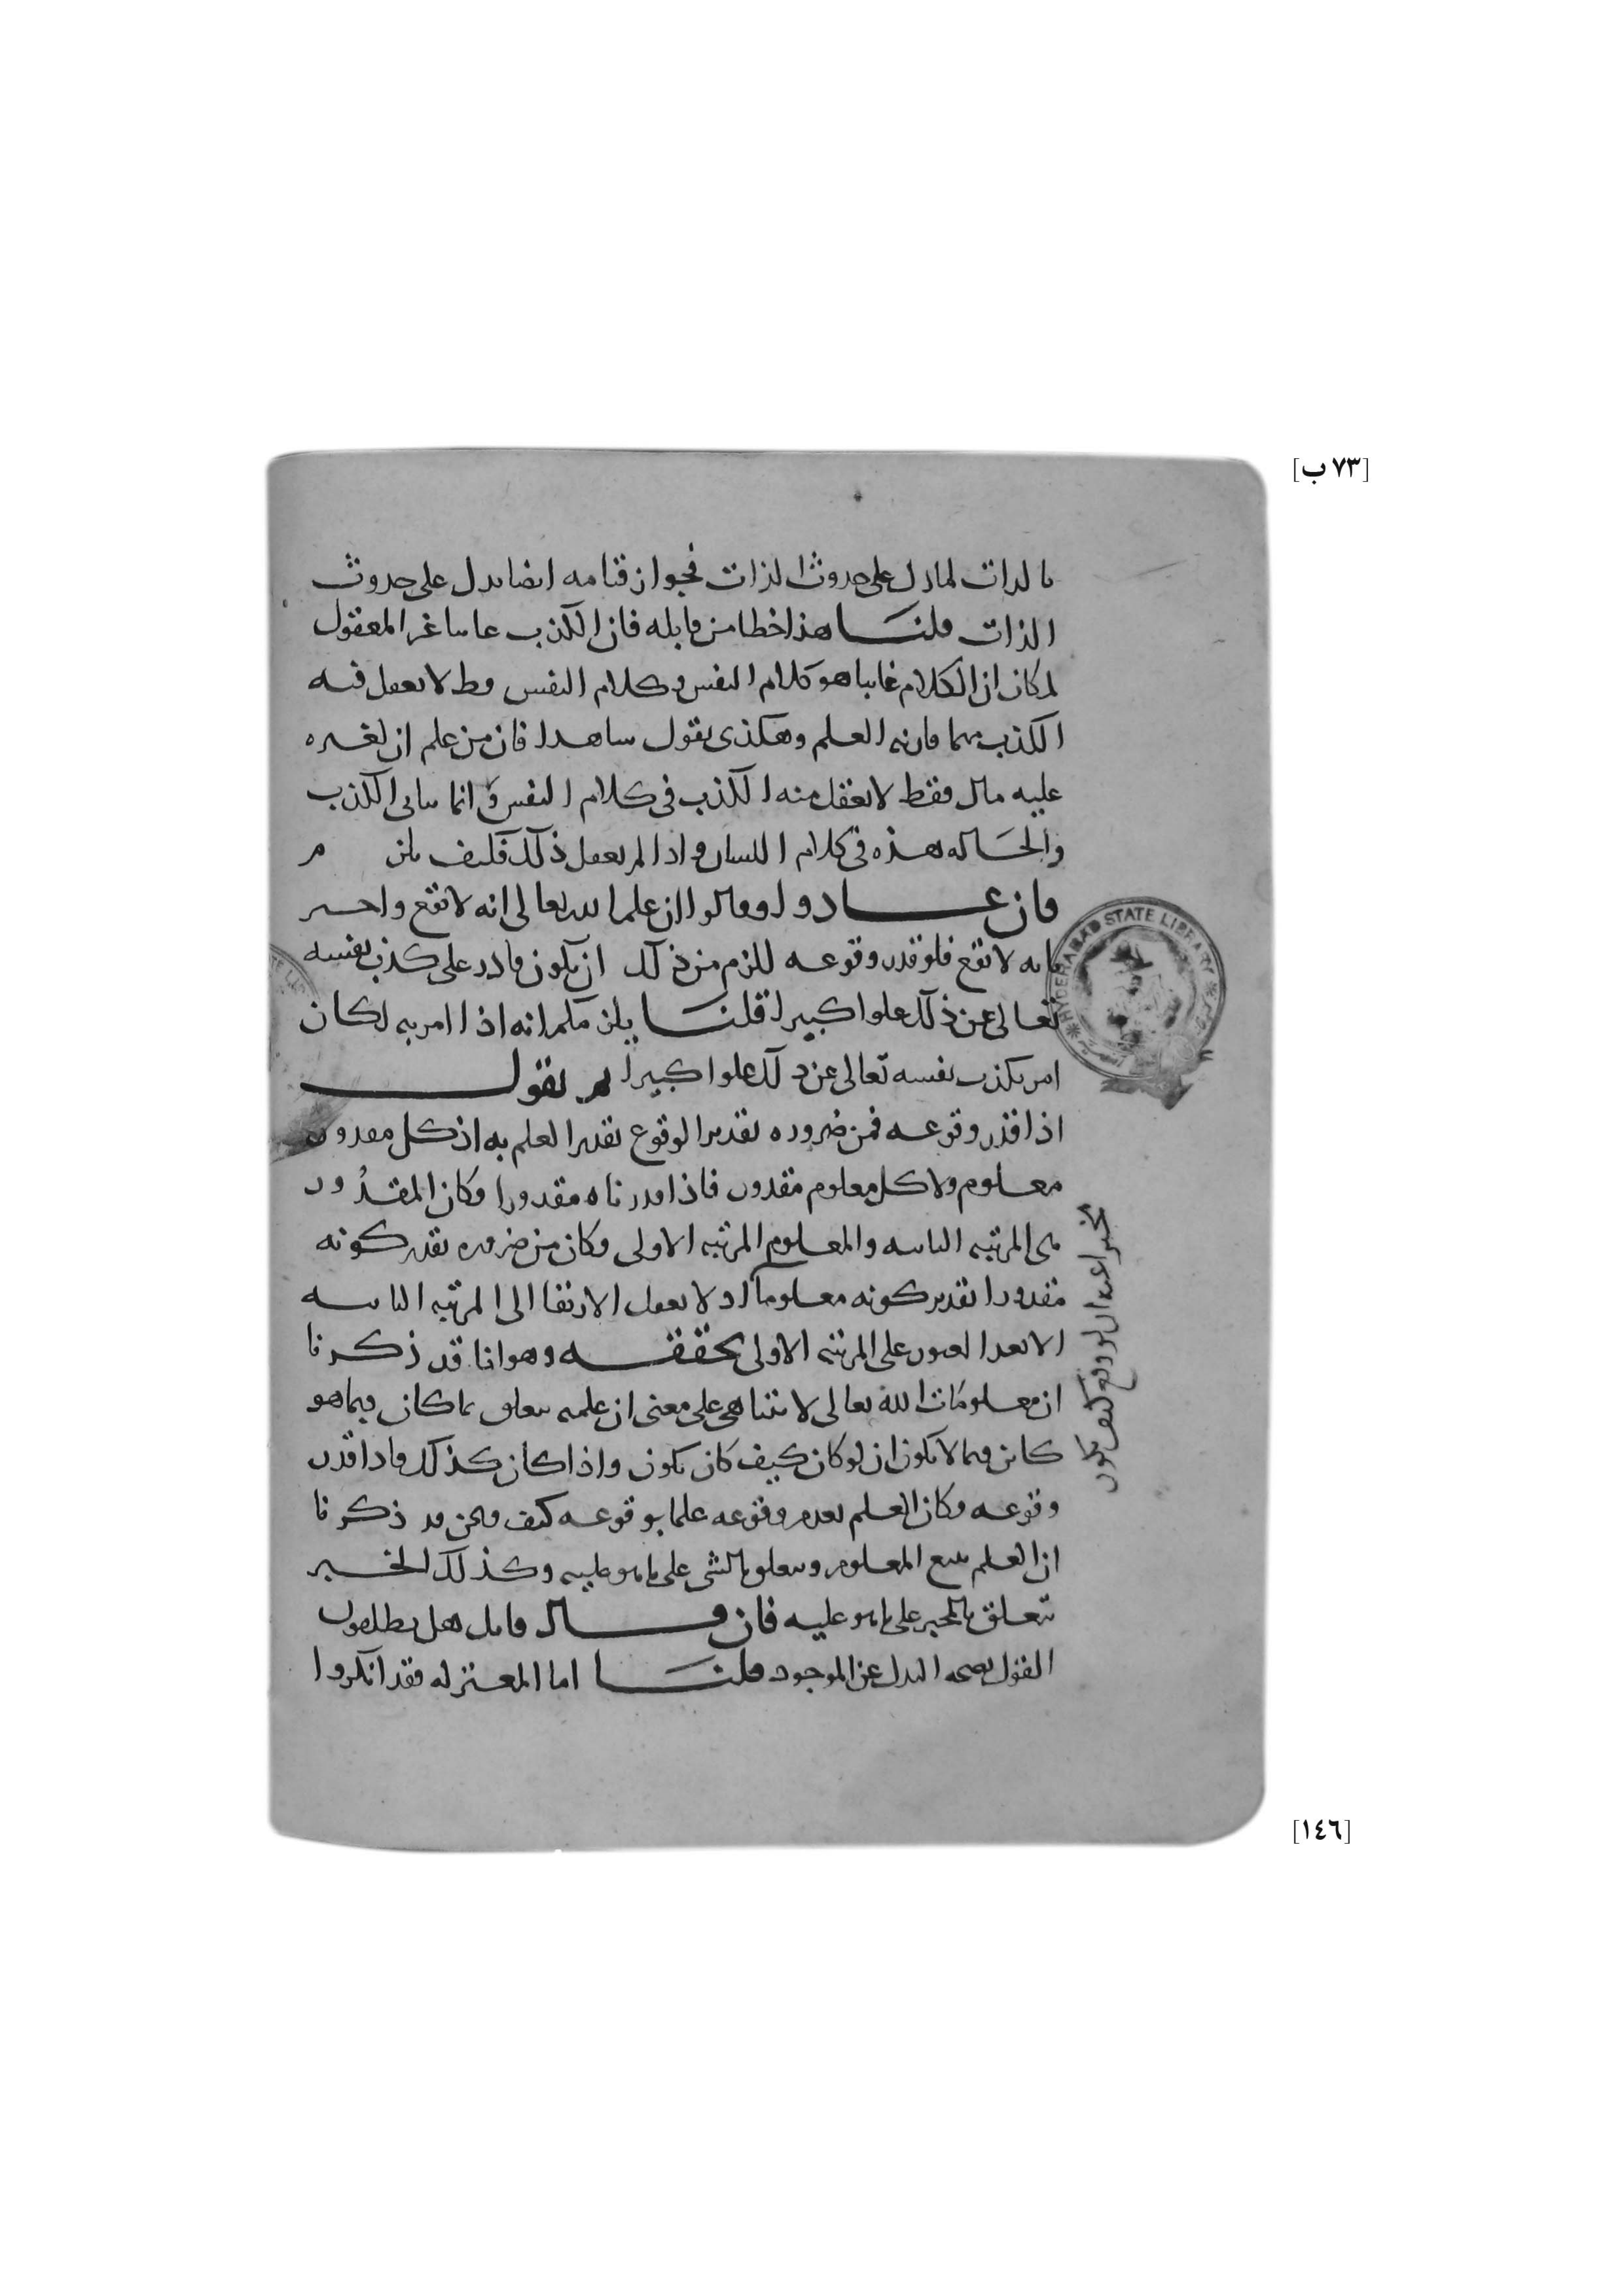 [٧٣ ب]
بالذات لما دل على حدوث الذات فجواز قيامه ايضا يدل على حدوث
الذات قلنا هذا خطا من قايله فان الكذب غايبا غير المعقول
لمكان ان الكلام غايبا هو كلام النفس وكلام النفس قط لا يعقل فيه
الكذب مهما قارنه العلم وهكذى نقول شاهدا فان من علم ان لغيره
عليه مال فقط لا يعقل منه الكذب في كلام النفس وانما يتاتى الكذب
والحاله هذه في كلام اللسان واذا لم يعقل ذلك فكيف يلزم
فان عادوا وقالوا ان علم الله تعالى انه لا يقع واخبر
بانه لا يقع فلو قدر وقوعه للزم من ذلك ان يكون قادر على كذب نفسه
تعالى عن ذلك علوا كبيرا قلنا يلزمكم انه اذا امر به لكان
امر بكذب نفسه تعالى عن ذلك علوا كبيرا ثم نقول
اذا قدر وقوعه فمن ضروره تقدير الوقوع تقدير العلم به اذ كل مقدور
معلوم ولا كل معلوم مقدور فاذا قدرناه مقدورا وكان المقدور
في المرتبه الثانيه والمعلوم المرتبه الاولى وكان من ضروره تقدير كونه
مقدورا تقدير كونه معلوما اذ لا يعقل الارتقا الى المرتبه الثانيه
الا بعد العبور على المرتبه الاولى يحققه وهو انا قد ذكرنا
ان معلومات الله تعالى لا تتناهى على معنى ان علمه يتعلق بما كان وبما هو
كاين وبما لا يكون ان لو كان كيف كان يكون واذا كان كذلك فاذا قدر
وقوعه وكان العلم بعدم وقوعه علما بوقوعه كيف ونحن قد ذكرنا
ان العلم يتبع المعلوم ويتعلق بالشى على ما هو عليه وكذلك الخبر
يتعلق بالمخبر على ما هو عليه فان قال قايل هل تطلقون
القول بصحه البدل عن الموجود قلنا اما المعتزله فقد انكروا
لو وقع كيف يكون
HYDERABAD STATE LIBRARY
[١٤٦]